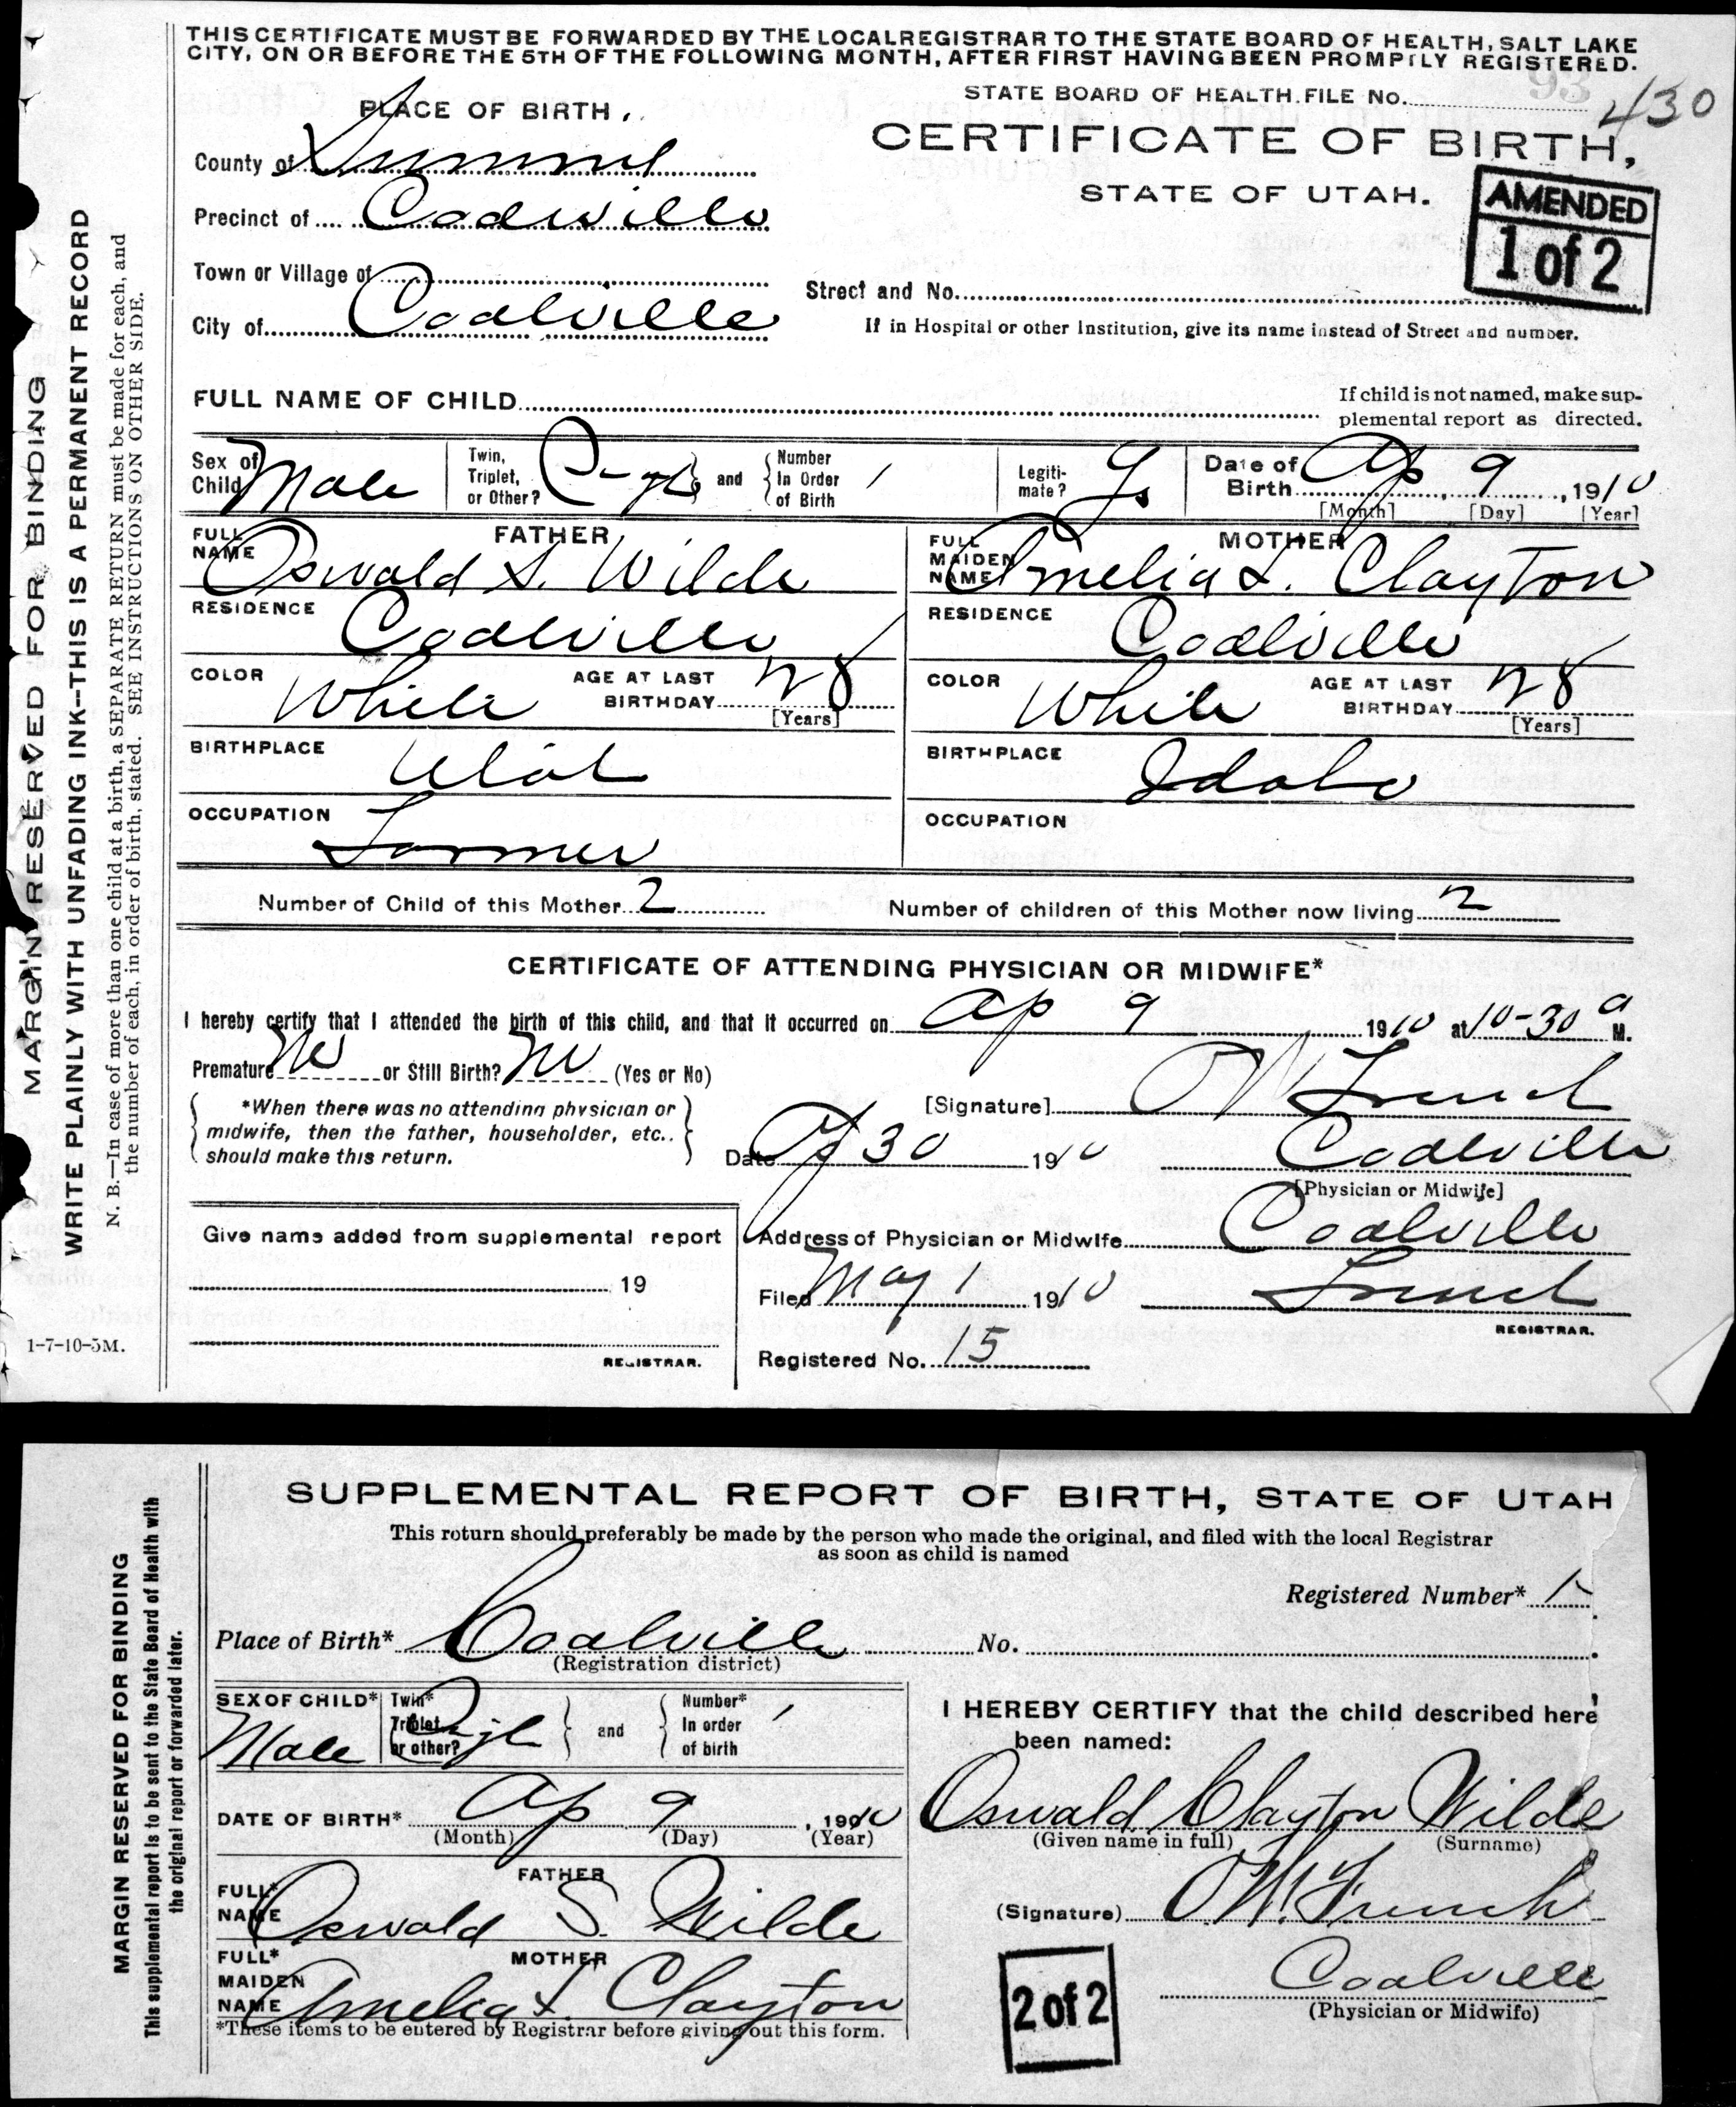 THIS CERTIFICATE MUST BE FORWARDED BY THE LOCAL REGISTRAR TO THE STATE BOARD OF HEALTH, SALT LAKE
CITY, ON OR BEFORE THE 5TH OF THE FOLLOWING MONTH, AFTER FIRST HAVING BEEN PROMPTLY REGISTERED.
PLACE OF BIRTH,
STATE BOARD OF HEALTH. FILE No. 93 430
CERTIFICATE OF BIRTH,
STATE OF UTAH.
AMENDED
1 of 2
County of Summit
Precinct of Coalville
Town or Village of
City of Coalville
Street and No.
If in Hospital or other Institution, give its name instead of Street and number.
FULL NAME OF CHILD
If child is not named, make sup-
plemental report as directed.
Sex of Child Male
Twin, Triplet, or Other? and Number In Order of Birth 1
Legiti-mate?
Date of Birth Ap 9, 1910
[Month] [Day] [Year]
FATHER
FULL NAME Oswald S. Wilde
RESIDENCE Coalville
COLOR White AGE AT LAST BIRTHDAY 28
[Years]
BIRTHPLACE Utah
OCCUPATION Farmer
MOTHER
FULL MAIDEN NAME Amelia L. Clayton
RESIDENCE Coalville
COLOR White AGE AT LAST BIRTHDAY 28
[Years]
BIRTHPLACE Idaho
OCCUPATION
Number of Child of this Mother 2 Number of children of this Mother now living 2
CERTIFICATE OF ATTENDING PHYSICIAN OR MIDWIFE*
I hereby certify that I attended the birth of this child, and that it occurred on Ap 9 1910 at 10-30 a M.
Premature No or Still Birth? No (Yes or No)
*When there was no attending physician or
midwife, then the father, householder, etc..
should make this return.
[Signature] O W French
Date Ap 30 1910 Coalville
[Physician or Midwife]
Give name added from supplemental report
19
REGISTRAR.
Address of Physician or Midwife Coalville
Filed May 1 1910 French
REGISTRAR.
Registered No. 15
1-7-10-5M.
MARGIN RESERVED FOR BINDING
WRITE PLAINLY WITH UNFADING INK--THIS IS A PERMANENT RECORD
N. B.—In case of more than one child at a birth, a SEPARATE RETURN must be made for each, and
the number of each, in order of birth, stated. SEE INSTRUCTIONS ON OTHER SIDE.
SUPPLEMENTAL REPORT OF BIRTH, STATE OF UTAH
This return should preferably be made by the person who made the original, and filed with the local Registrar
as soon as child is named
Registered Number*
Place of Birth* Coalville No.
(Registration district)
SEX OF CHILD* Male
Twin* Triplet or other? and Number* In order of birth 1
DATE OF BIRTH* Ap 9, 1910
(Month) (Day) (Year)
FATHER
FULL* NAME Oswald S. Wilde
MOTHER
FULL* MAIDEN NAME Amelia L. Clayton
*These items to be entered by Registrar before giving out this form.
I HEREBY CERTIFY that the child described here
been named:
Oswald Clayton Wilde
(Given name in full) (Surname)
(Signature) O W. French
Coalville
(Physician or Midwife)
2 of 2
MARGIN RESERVED FOR BINDING
This supplemental report is to be sent to the State Board of Health with
the original report or forwarded later.